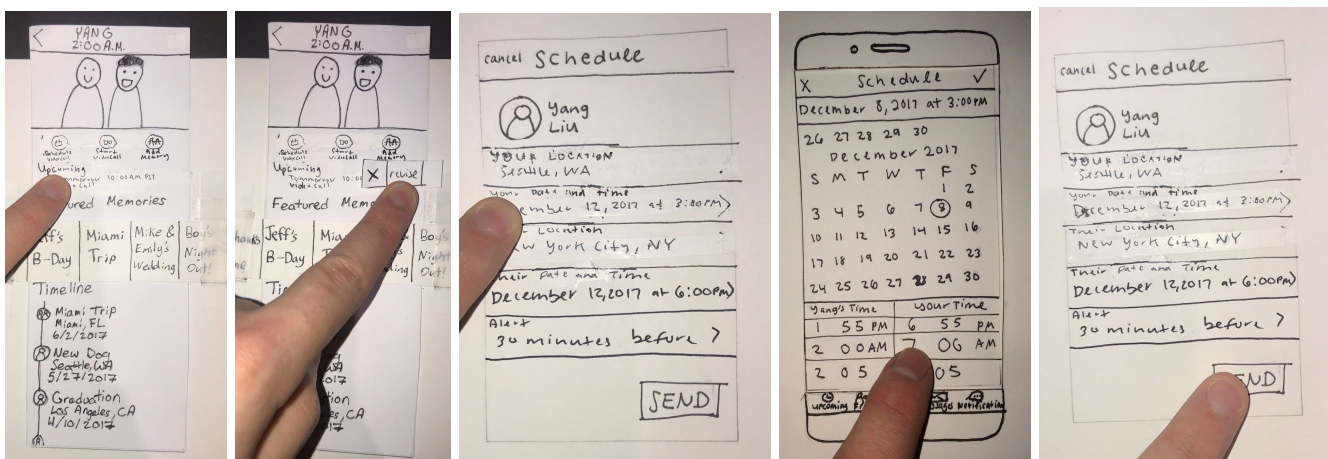 YANG
2:00 A.M.
Schedule
Video Call
Start
Video Call
Add
Memory
Upcoming
10:00 AM PST
Call
ured Memories
B-Day
Miami
Trip
Mike &
Emily's
Wedding
Boy's
Night
Out!
Timeline
Miami Trip
Miami, FL
6/2/2017
New Dog
Seattle, WA
5/27/2017
Graduation
Los Angeles, CA
4/10/2017
YANG
2:00 A.M.
Schedule
Video Call
Start
Video Call
Add
Memory
Upcoming
Tommorow 10:0
Video Call
X revise
Featured Mem
Jeff's
B-Day
Trip
Boy's
Night
Out!
Tim
es, CA
17
cancel Schedule
Yang
Liu
YOUR LOCATION
Seattle, WA
Your Date and Time
cember 12, 2017 at 3:00PM >
Location
ew York City, NY
Their Date and Time
December 12, 2017 at 6:00pm)
Alert
30 minutes before >
SEND
X Schedule ✓
December 8, 2017 at 3:00PM
26 27 28 29 30
December 2017
S M T W T F S
1 2
3 4 5 6 7 8 9
10 11 12 13 14 15 16
17 18 19 20 21 22 23
24 25 26 27 28 29 30
Yang's Time Your Time
1 55 PM 6 55 PM
2 00 AM 7 00 AM
2 05 05
Upcoming Notification
cancel Schedule
Yang
Liu
YOUR LOCATION
Seattle, WA
Your Date and Time
December 12, 2017 at 3:00PM >
Their Location
New York City, NY
Their Date and Time
December 12, 2017 at 6:00pm)
Alert
30 minutes before >
END